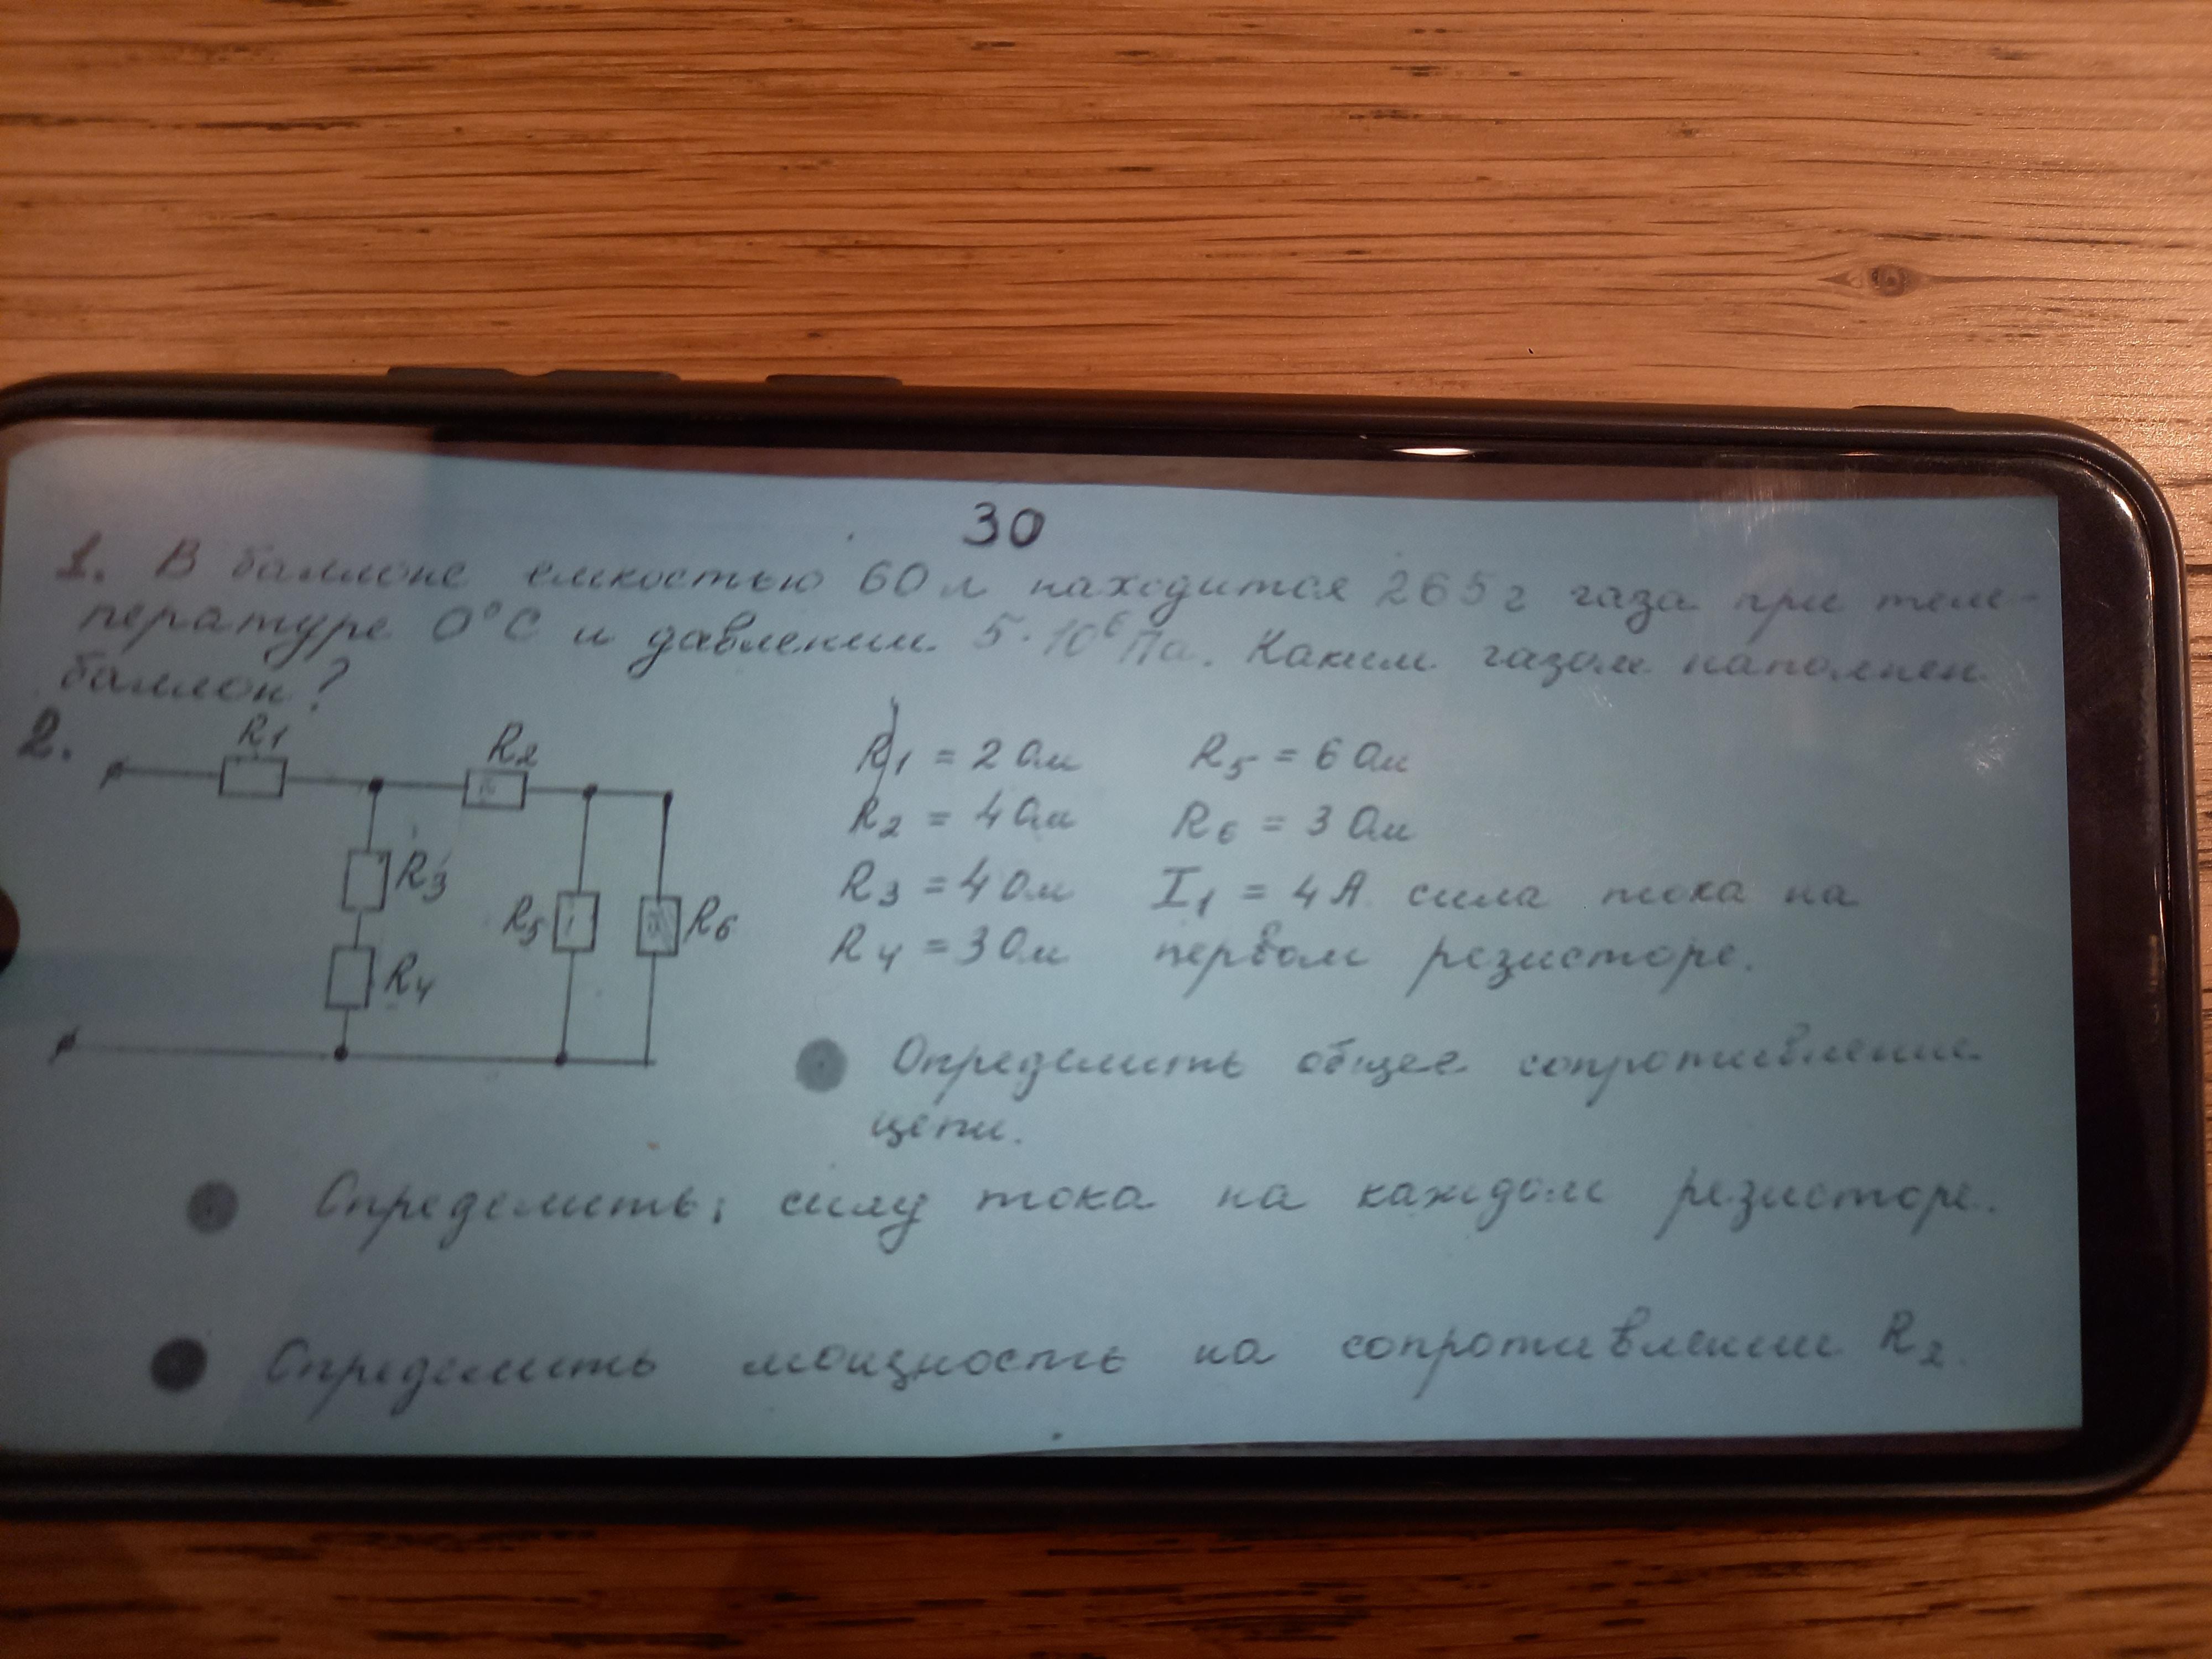 30
1. В баллоне емкостью 60 л находится 265 г газа при тем-
пературе 0°С и давлении 5·10⁶ Па. Каким газом наполнен
баллон?
2.
R1
R2
R3
R4
R5
R6
R1 = 2 Ом
R5 = 6 Ом
R2 = 4 Ом
R6 = 3 Ом
R3 = 4 Ом
I1 = 4 А сила тока на
R4 = 3 Ом
первом резисторе.
Определить общее сопротивление
цепи.
Определить; силу тока на каждом резисторе.
Определить мощность на сопротивлении R2.